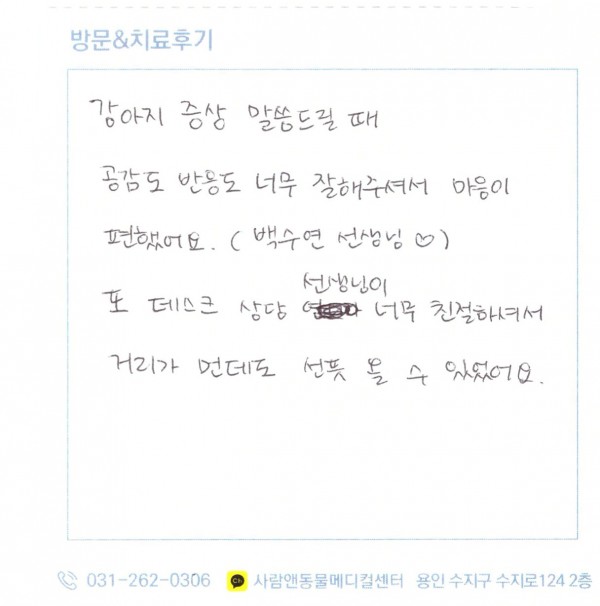 방문&치료후기
강아지 증상 말씀드릴 때
공감도 반응도 너무 잘해주셔서 마음이
편했어요. (백수연 선생님 ♡)
또 데스크 상담 선생님이 너무 친절하셔서
거리가 먼데도 선뜻 올 수 있었어요.
031-262-0306 Ch 사람앤동물메디컬센터 용인 수지구 수지로124 2층